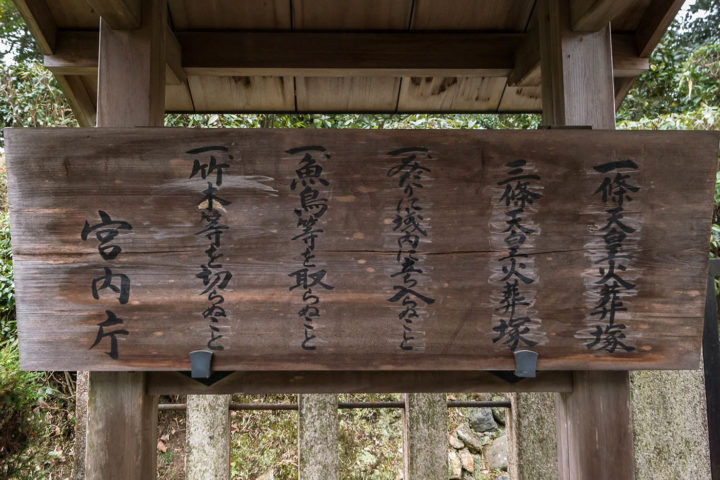 一條天皇火葬塚
三條天皇火葬塚
一、みだりに域内に立ち入らぬこと
一、魚鳥等を取らぬこと
一、竹木等を切らぬこと
宮内庁